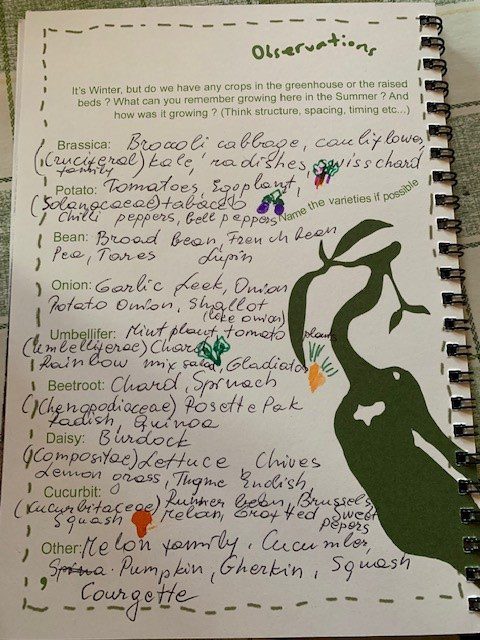 Observations
It's Winter, but do we have any crops in the greenhouse or the raised
beds ? What can you remember growing here in the Summer ? And
how was it growing ? (Think structure, spacing, timing etc...)
Brassica: Broccoli cabbage, cauliflower,
(Cruciferal) kale, radishes, swisschard
family
Potato: Tomatoes, Egoplant,
(Solanaceae) tabacco
Chilli peppers, bell peppers
Name the varieties if possible
Bean: Broad bean, French bean
Pea, Tares Lupin
Onion: Garlic Leek, Onion
Potato Onion, Shallot
(like onion)
Umbellifer: Mint plant, tomato plants
(Umbelliferae) Chard
Rainbow mix salad, Gladiator
Beetroot: Chard, Spinach
(Chenopodiaceae) Rosette Pak
radish, Quinoa
Daisy: Burdock
(Compositae) Lettuce Chives
Lemon grass, Thyme Endish,
Cucurbit:
(Cucurbitaceae) Runner bean, Brussels
Squash Melon, Grafted Sweet
Pepers
Other: Melon family, Cucumber,
Pumpkin, Gherkin, Squash
Courgette